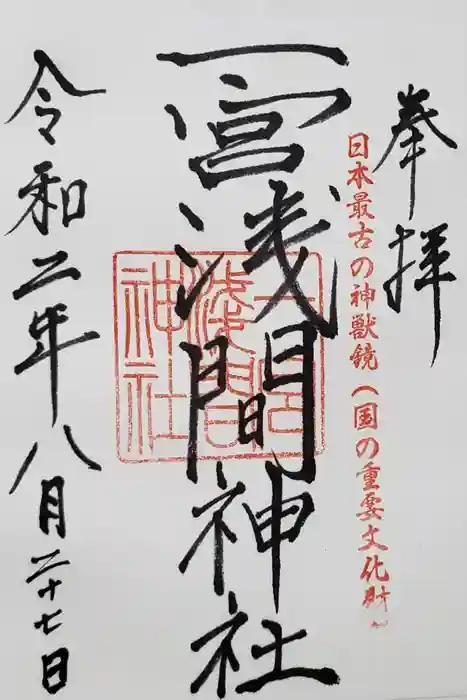 奉拝
日本最古の神獣鏡(国の重要文化財)
一宮浅間神社
一宮浅間神社
令和二年八月二十七日